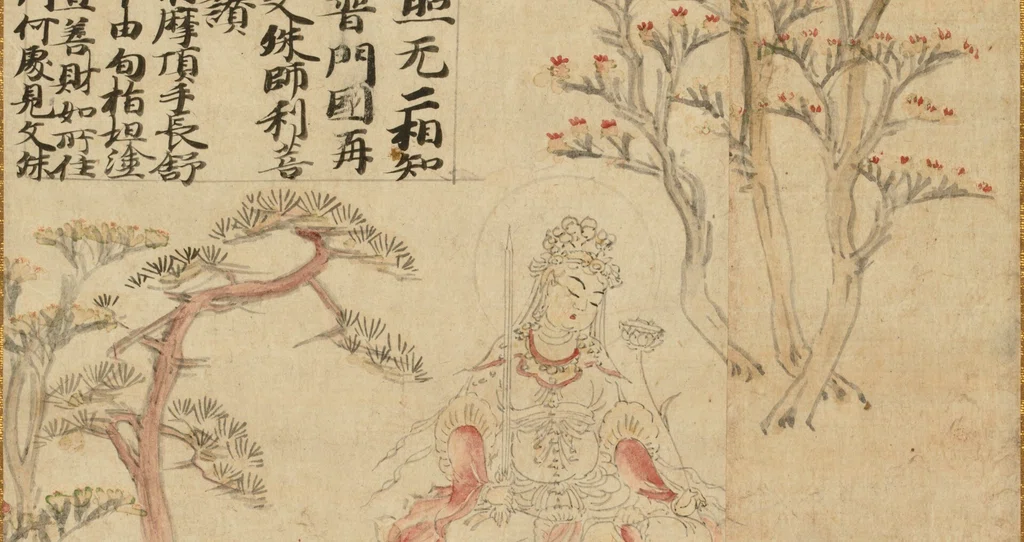 照无二相知
普門國再
文殊師利菩
讃
摩頂手長舒
由旬指坦塗
善財如所住
何處見文殊